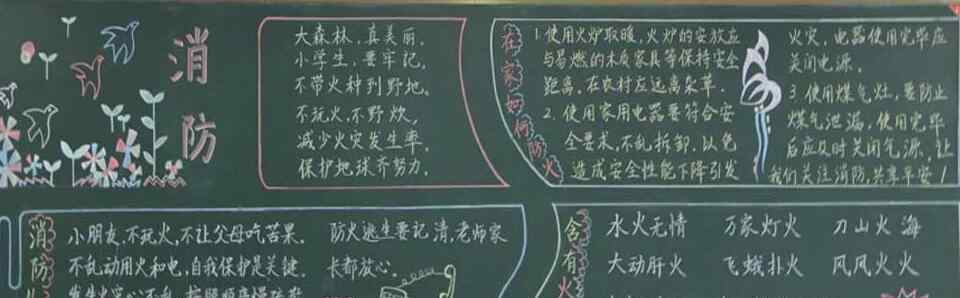 消防
大森林,真美丽,
小学生,要牢记,
不带火种到野地。
不玩火,不野炊,
减少火灾发生率,
保护地球齐努力。
在家如何防火
1.使用火炉取暖,火炉的安放应
与易燃的木质家具等保持安全
距离,在农村应远离柴草.
2.使用家用电器要符合安
全要求,不乱拆卸,以免
造成安全性能下降引发
火灾,电器使用完毕应
关闭电源。
3.使用煤气灶,要防止
煤气泄漏,使用完毕
后应及时关闭气源,让
我们关注消防,共享平安!
消防
小朋友,不玩火,不让父母吃苦果。
不乱动用火和电,自我保护是关键。
防火逃生要记清,老师家
长都放心。
含有火
水火无情 万家灯火 刀山火海
大动肝火 飞蛾扑火 风风火火